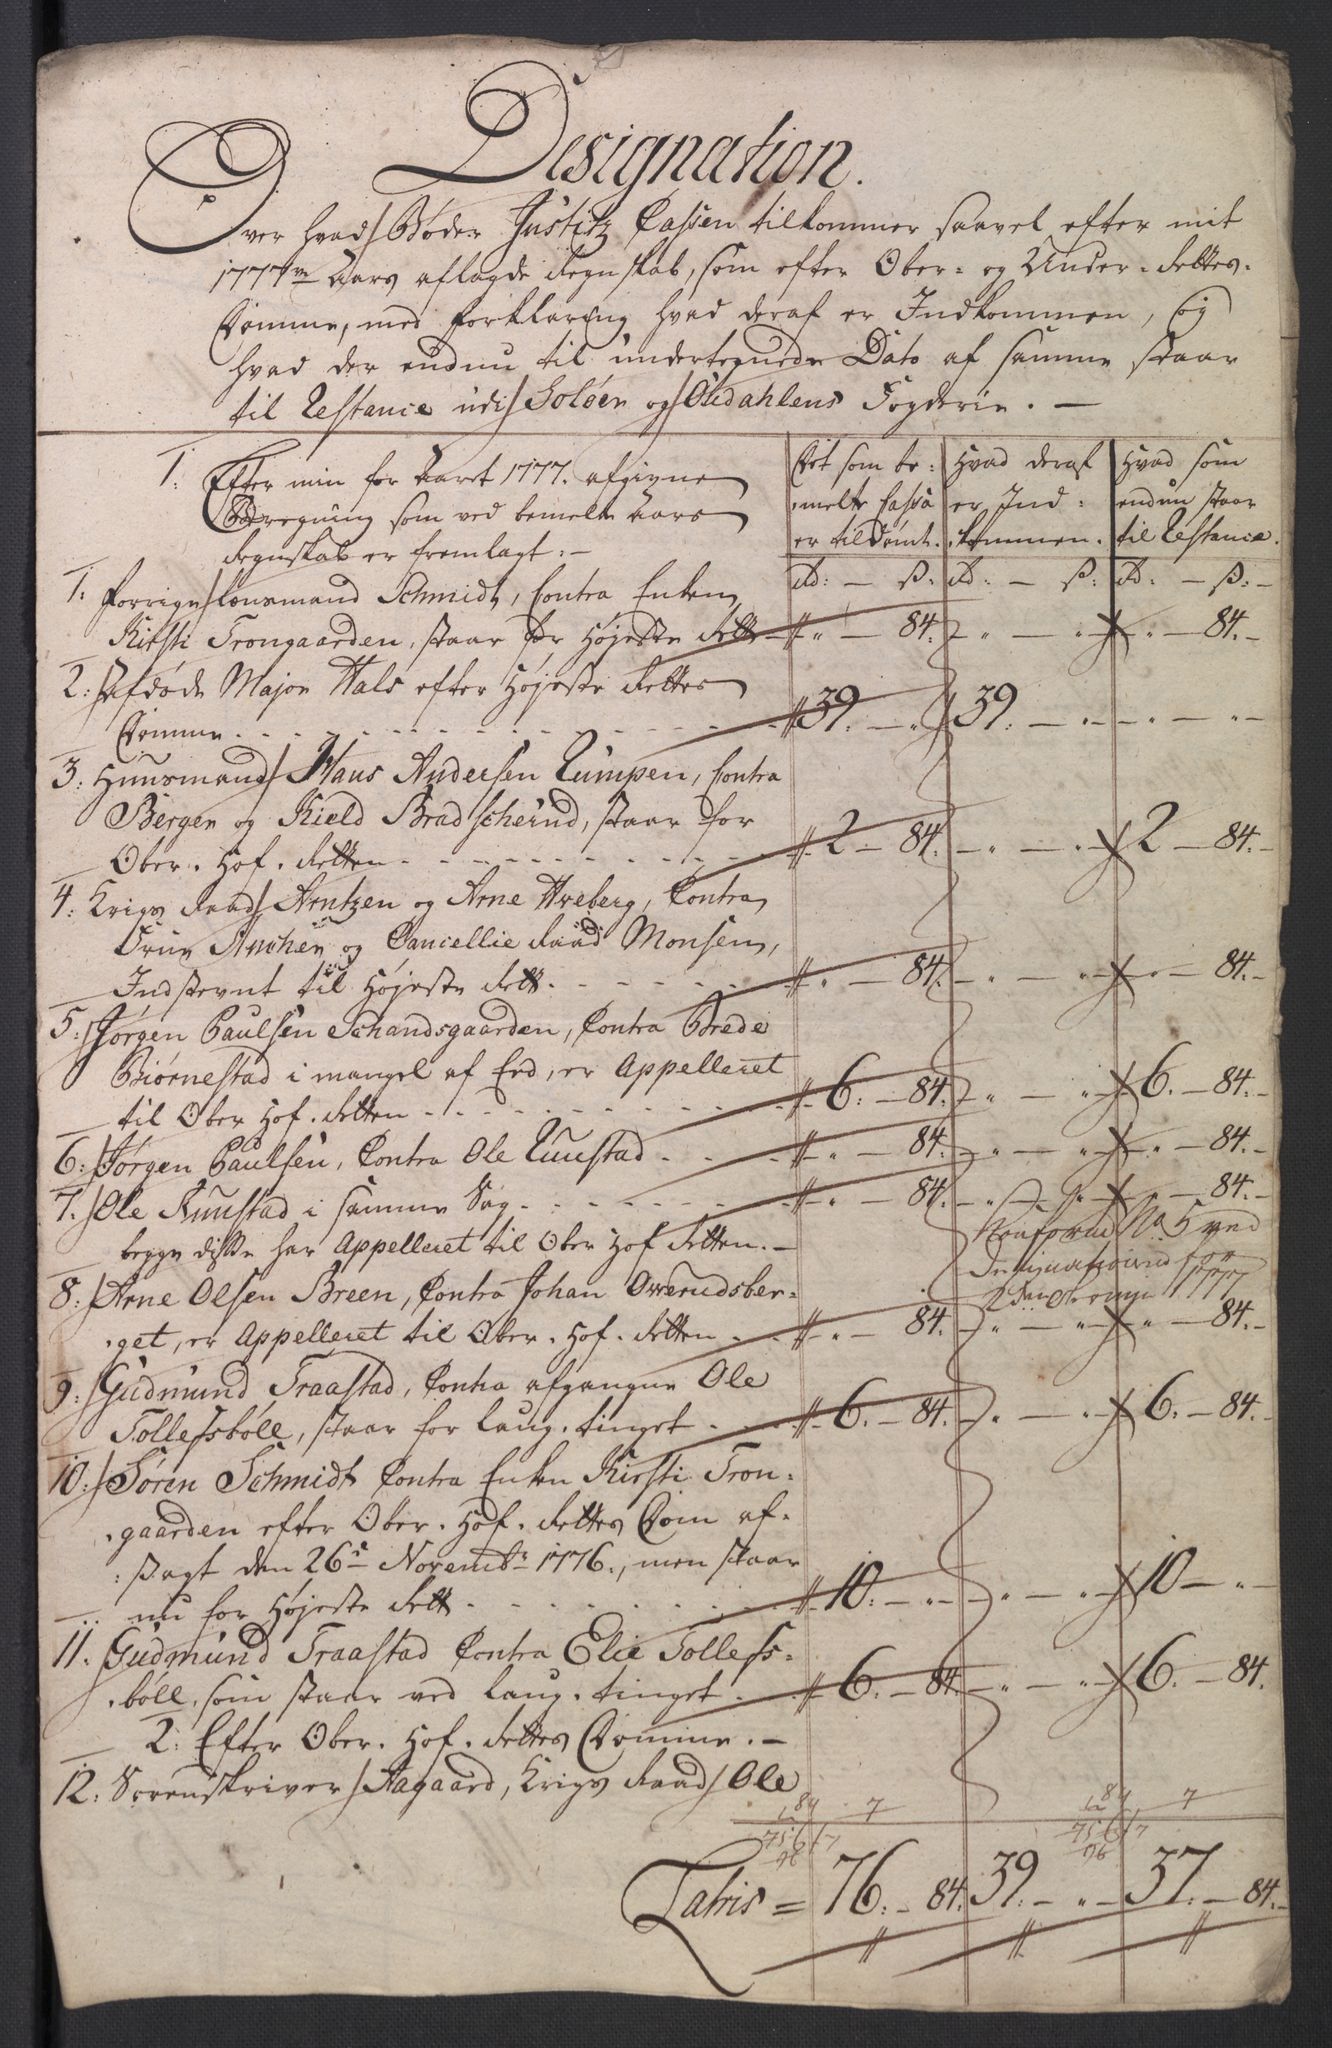 Designation.
Over hvad Bøder Justitz Cassen tilkommer saavel efter mit
1777de Aars aflagde Regnskab, som efter Ober- og Under-Rettes-
Domme, med forklaring hvad deraf er Indkommen, og
hvad der endnu til undertegnede Dato af samme staar
til Restance udi Soløer og Oudahlens Fogderie. —
1. Efter min for Aaret 1777. afgivne
Beregning som ved bemelte Aars
Regnskab er fremlagt: —
Det som be-
melte Cassa
er tildømt.
Hvad deraf
er Ind-
kommen.
Hvad som
endnu staar
til Restance.
Rd: — ß: Rd: — ß: Rd: — ß: —
1. Forrige Lensmand Schmidt, Contra Enken
Kirsti Trongaarden, staar for Højeste Rett „ — 84. „ — „ „ — 84. —
2: Afdøde Major Hals efter Højeste Rettes
Domme . . . 39. — „ 39. — „ — „ — „ —
3: Huusmand Hans Andersen Rumpen, Contra
Bergen og Kield Bradscherud, staar for
Ober. Hof. Retten . . . 2 — 84. „ — „ 2 — 84. —
4: Krigs Raad Arntzen og Arne Hveberg, Contra
Frue Anchen og Cancellie Raad Monsen,
Indstevnt til Højeste Rett. . . . „ — 84. „ — „ „ — 84. —
5: Jørgen Paulsen Schandsgaarden, Contra Brede
Biørnestad i mangel af Eed, er Appelleret
til Ober Hof. Retten . . . 6. — 84. „ — „ 6. — 84. —
6: Jørgen Paulsen, Contra Ole Ruustad . . . „ — 84. „ — „ „ — 84. —
7. Ole Ruustad i samme Sag. . . . „ — 84. „ — „ — 84. —
begge disse har Appelleret til Ober Hof Retten. —
No 5 ved
Designationen for
1777
8: Arne Olsen Breen, Contra Johan Overudsber-
get, er Appelleret til Ober. Hof. Retten . . . „ — 84. „ — „ „ — 84. —
9: Gudmund Traastad, Contra afgangne Ole
Tollefsbøll, staar for Laug. tinget . . . 6. — 84. „ — „ 6. — 84. —
10: Søren Schmidt Contra Enken Kirsti Tron-
gaarden efter Ober. Hof. Rettes Dom af-
sagt den 26de Novembr 1776., men staar
nu for Højeste Rett . . . 10: — „ „ — „ 10 — „ —
11. Gudmund Traastad Contra Elie Tollefs-
bøll, som staar ved Laug. tinget . . . 6. — 84. „ — „ 6. — 84.
2: Efter Ober. Hof. Rettes Domme. —
12: Sorenskriver Aagaard, Krigs Raad Ole
84 7 84 7
756 7 756 7
96 96
Latris = 76. — 84. 39. — „ — 37. — 84. —